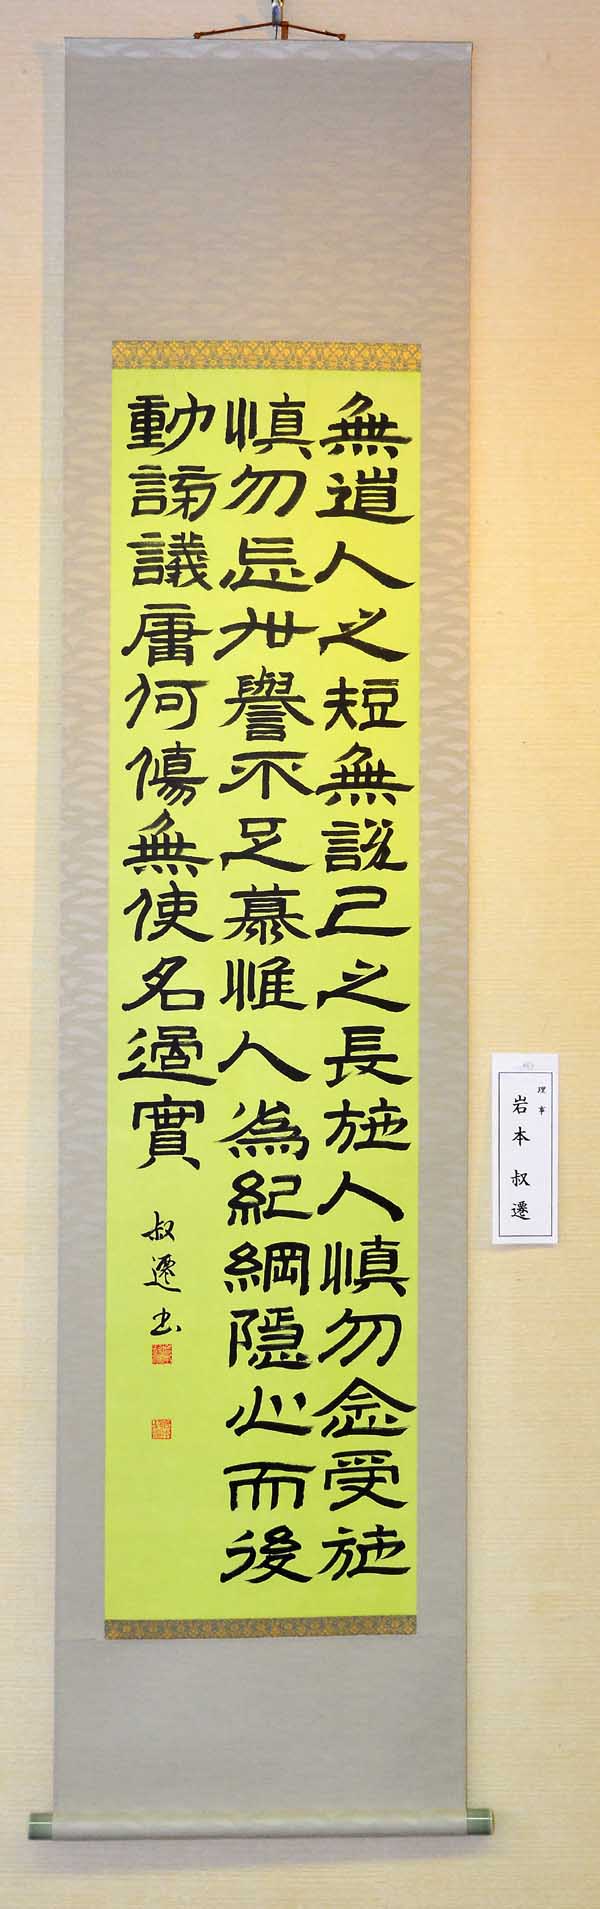 無道人之短無説己之長施人慎勿念受施
慎勿忘世譽不足慕惟人為紀綱隱心而後
動謗議庸何傷無使名過實
叔遷书
理事
岩本 叔遷